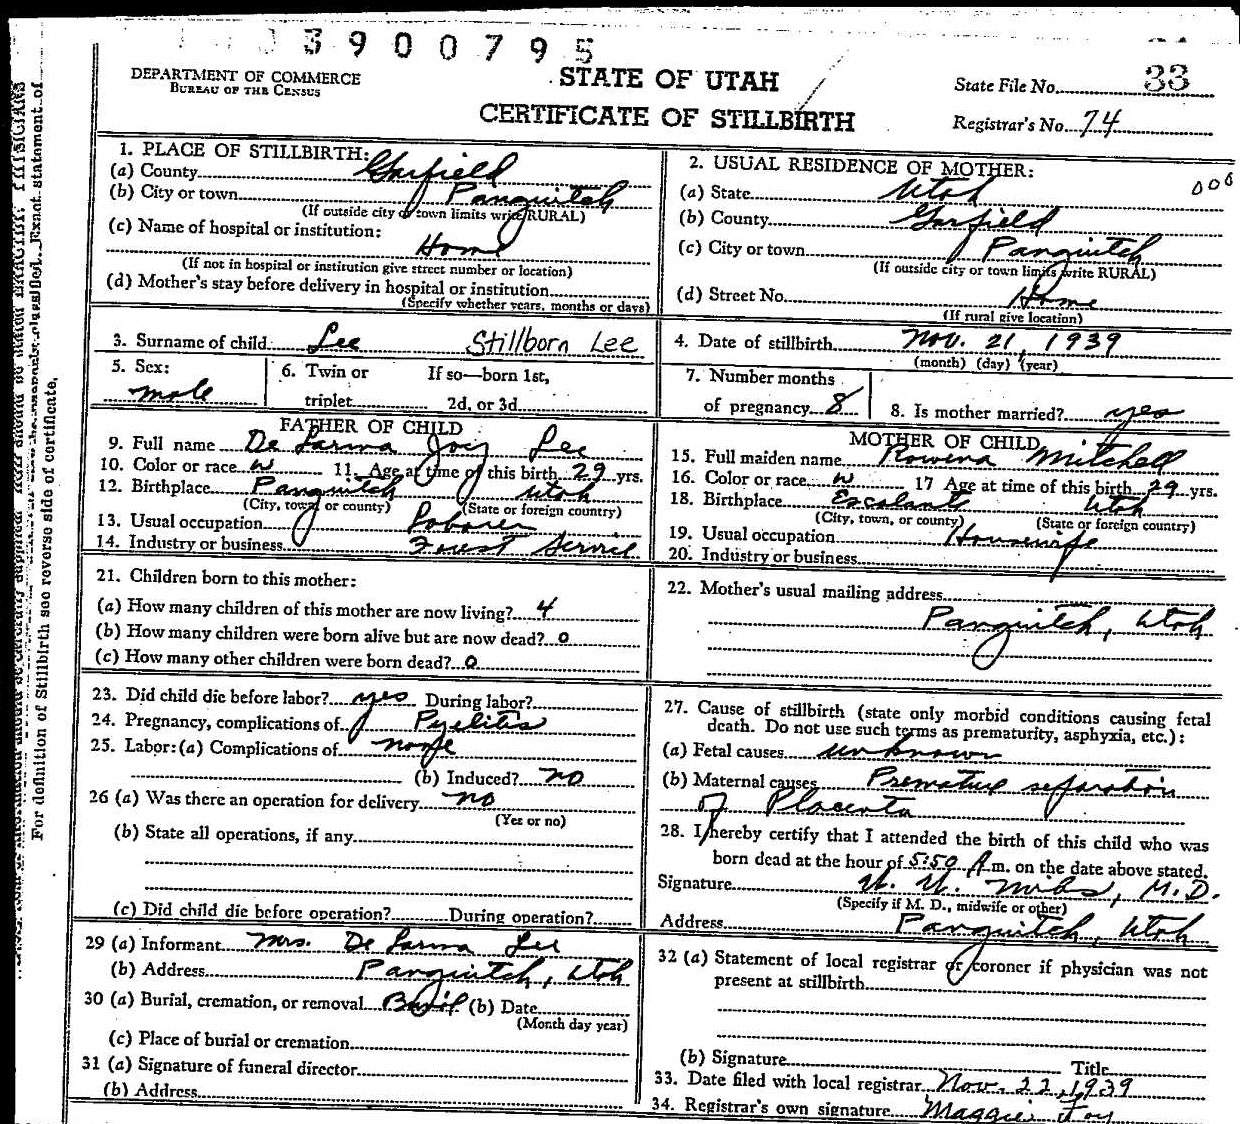 3900795
DEPARTMENT OF COMMERCE
BUREAU OF THE CENSUS
STATE OF UTAH
CERTIFICATE OF STILLBIRTH
State File No. 33
Registrar's No. 74
1. PLACE OF STILLBIRTH:
(a) County Garfield
(b) City or town Panguitch
(If outside city or town limits write RURAL)
(c) Name of hospital or institution:
Home
(If not in hospital or institution give street number or location)
(d) Mother's stay before delivery in hospital or institution
(Specify whether years, months or days)
2. USUAL RESIDENCE OF MOTHER:
006
(a) State Utah
(b) County Garfield
(c) City or town Panguitch
(If outside city or town limits write RURAL)
(d) Street No. Home
(If rural give location)
3. Surname of child Lee Stillborn Lee
4. Date of stillbirth Nov. 21, 1939
(month) (day) (year)
5. Sex:
male
6. Twin or If so—born 1st,
triplet 2d, or 3d
7. Number months
of pregnancy 8
8. Is mother married? yes
FATHER OF CHILD
9. Full name De Larma Joy Lee
10. Color or race w 11. Age at time of this birth 29 yrs.
12. Birthplace Panguitch Utah
(City, town, or county) (State or foreign country)
13. Usual occupation Laborer
14. Industry or business Forest Service
MOTHER OF CHILD
15. Full maiden name Rowena Mitchell
16. Color or race w 17 Age at time of this birth 29 yrs.
18. Birthplace Escalante Utah
(City, town, or county) (State or foreign country)
19. Usual occupation Housewife
20. Industry or business
21. Children born to this mother:
(a) How many children of this mother are now living? 4
(b) How many children were born alive but are now dead? 0
(c) How many other children were born dead? 0
22. Mother's usual mailing address
Panguitch, Utah
23. Did child die before labor? yes During labor?
24. Pregnancy, complications of Pyelitis
25. Labor: (a) Complications of none
(b) Induced? no
26 (a) Was there an operation for delivery no
(Yes or no)
(b) State all operations, if any
(c) Did child die before operation? During operation?
27. Cause of stillbirth (state only morbid conditions causing fetal
death. Do not use such terms as prematurity, asphyxia, etc.):
(a) Fetal causes unknown
(b) Maternal causes Premature separation
of Placenta
28. I hereby certify that I attended the birth of this child who was
born dead at the hour of 5:50 A m. on the date above stated.
Signature M.D.
(Specify if M. D., midwife or other)
Address Panguitch, Utah
29 (a) Informant Mrs. De Larma Lee
(b) Address Panguitch, Utah
30 (a) Burial, cremation, or removal Burial (b) Date
(Month day year)
(c) Place of burial or cremation
31 (a) Signature of funeral director
(b) Address
32 (a) Statement of local registrar or coroner if physician was not
present at stillbirth
(b) Signature Title
33. Date filed with local registrar Nov. 22, 1939
34. Registrar's own signature Maggie Foy
For definition of Stillbirth see reverse side of certificate.